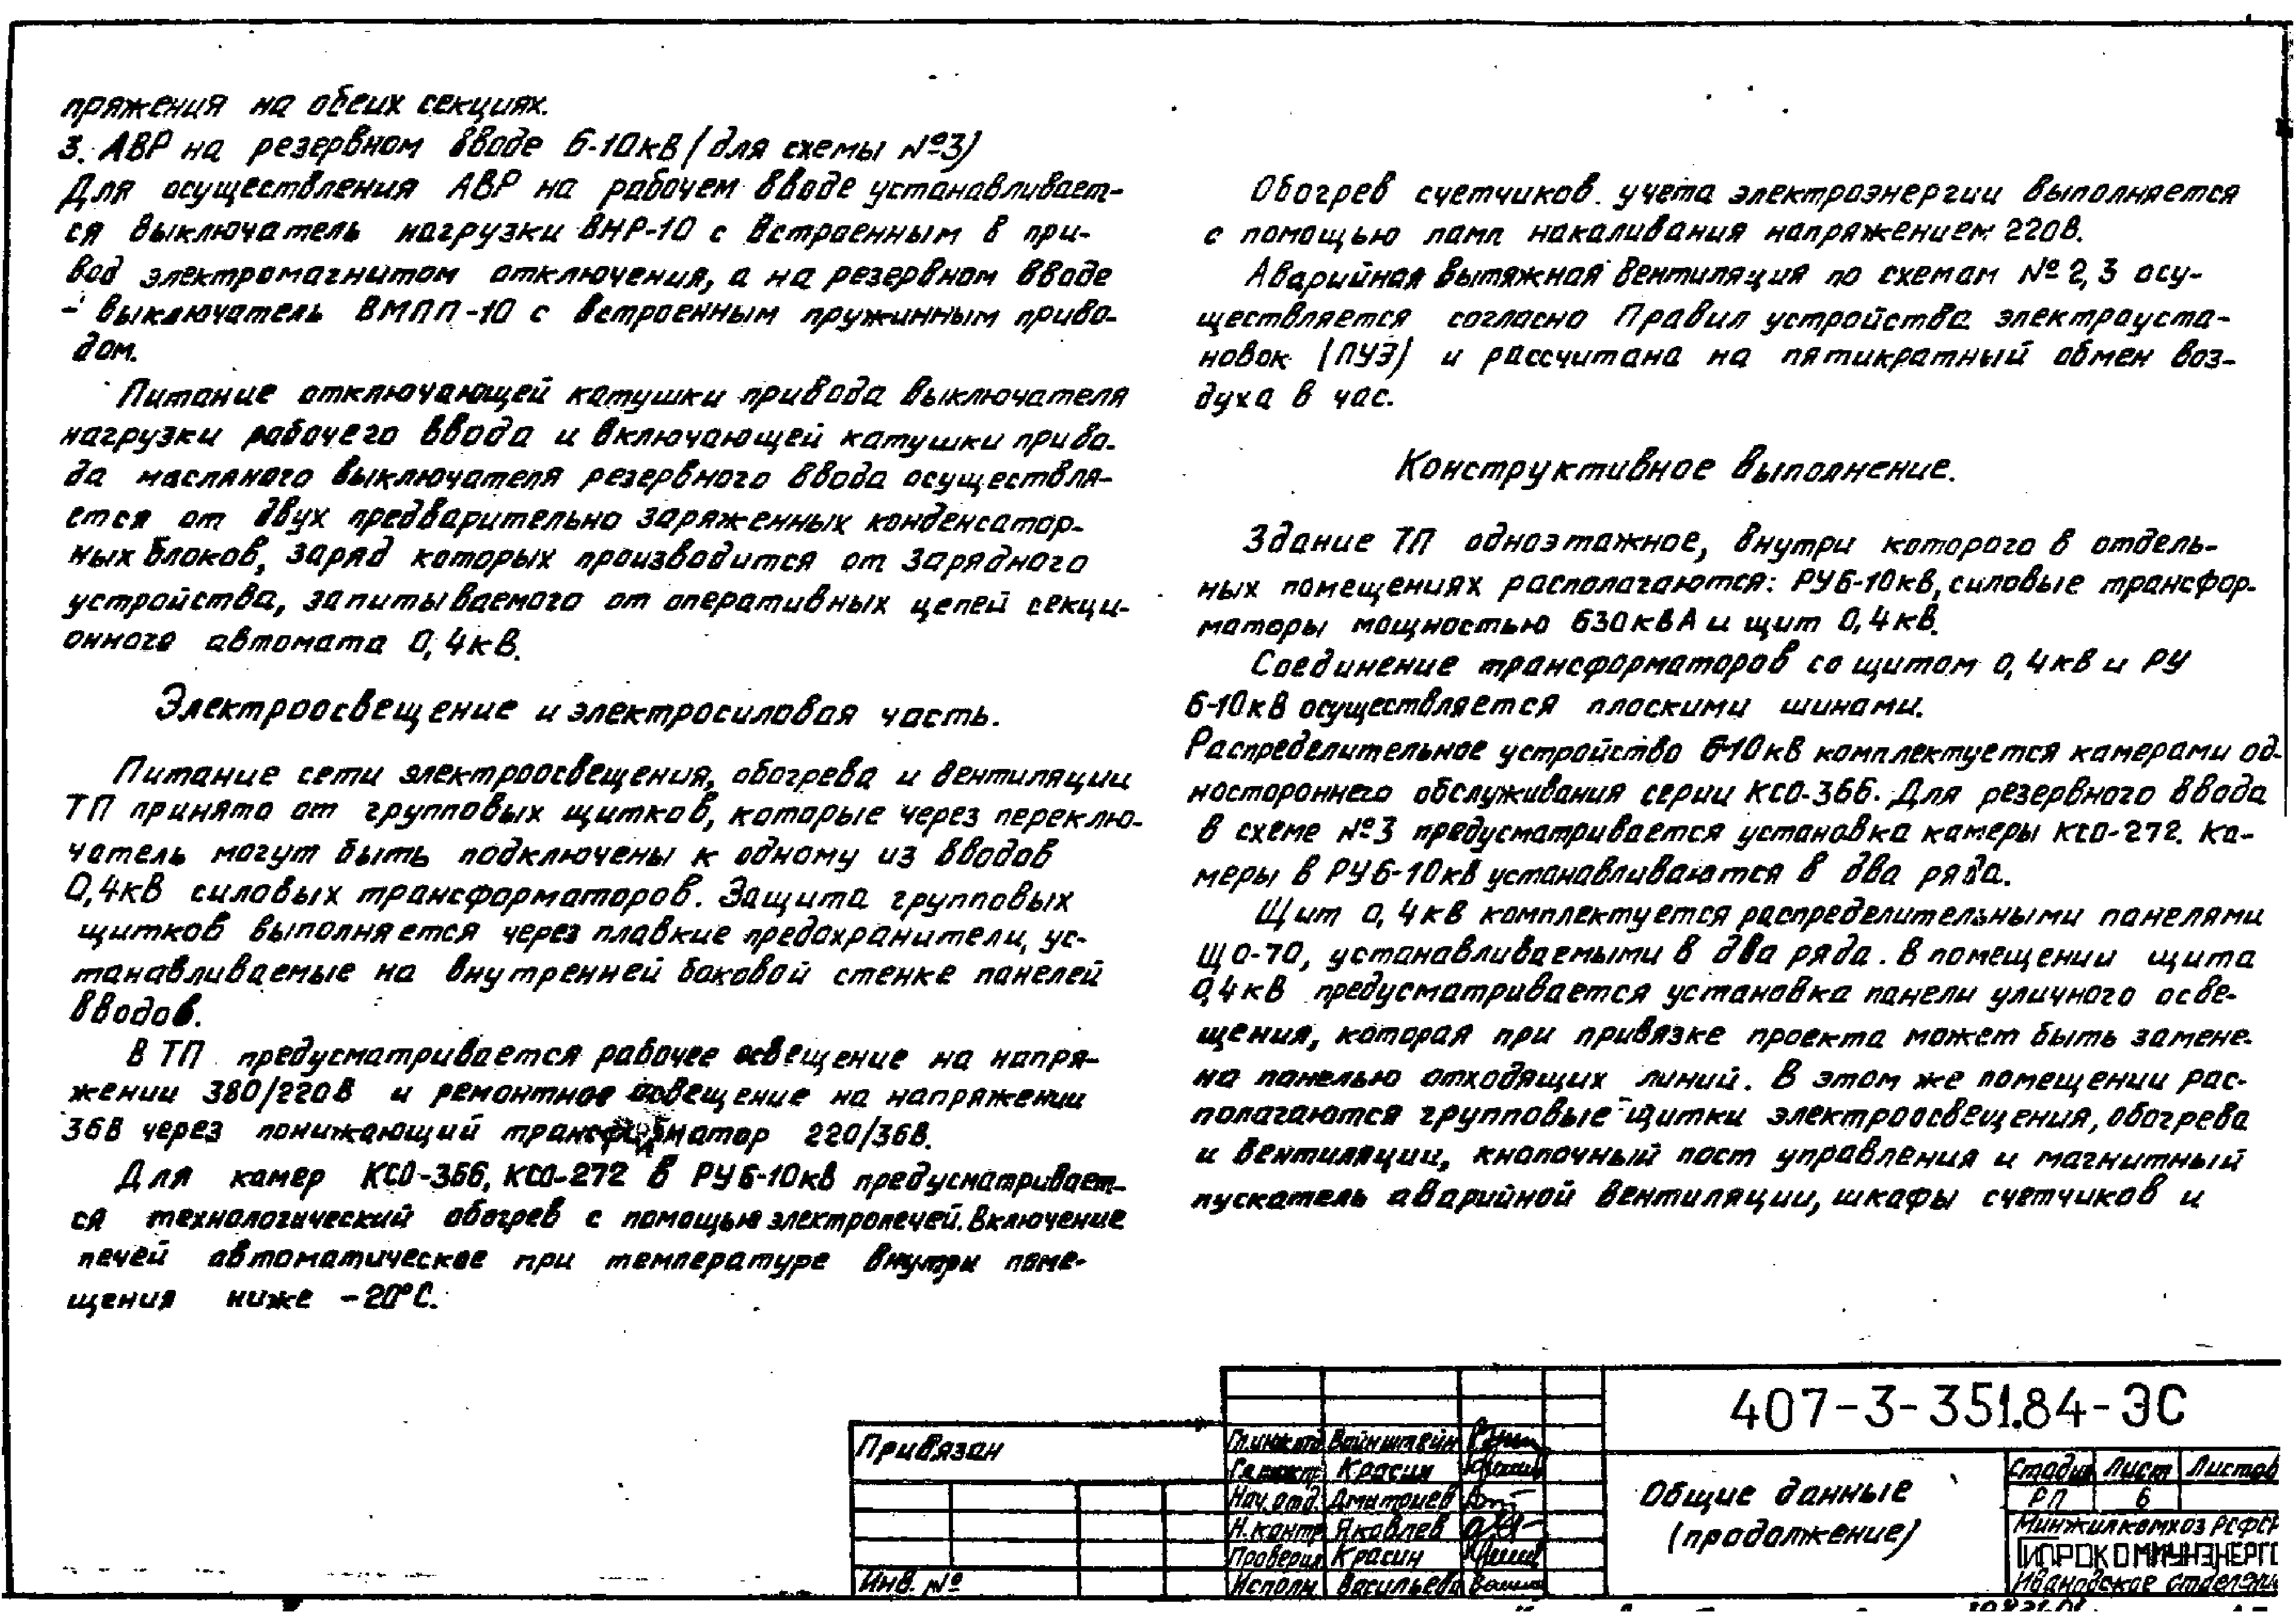 пряжения на обеих секциях.
3. АВР на резервном вводе 6-10кВ (для схемы №3)
Для осуществления АВР на рабочем вводе устанавливает-
ся выключатель нагрузки ВНР-10 с встроенным в при-
вод электромагнитом отключения, а на резервном вводе
- выключатель ВМПП-10 с встроенным пружинным приво-
дом.
Питание отключающей катушки привода выключателя
нагрузки рабочего ввода и включающей катушки приво-
да масляного выключателя резервного ввода осуществля-
ется от двух предварительно заряженных конденсатор-
ных блоков, заряд которых производится от зарядного
устройства, запитываемого от оперативных цепей секци-
онного автомата 0,4кВ.
Электроосвещение и электросиловая часть.
Питание сети электроосвещения, обогрева и вентиляции
ТП принято от групповых щитков, которые через переклю-
чатель могут быть подключены к одному из вводов
0,4кВ силовых трансформаторов. Защита групповых
щитков выполняется через плавкие предохранители, ус-
танавливаемые на внутренней боковой стенке панелей
вводов.
В ТП предусматривается рабочее освещение на напря-
жении 380/220В и ремонтное освещение на напряжении
36В через понижающий трансформатор 220/36В.
Для камер КСО-366, КСО-272 в РУ6-10кВ предусматривает-
ся технологический обогрев с помощью электропечей. Включение
печей автоматическое при температуре внутри поме-
щения ниже -20°С.
Обогрев счетчиков учета электроэнергии выполняется
с помощью ламп накаливания напряжением 220В.
Аварийная вытяжная вентиляция по схемам №2,3 осу-
ществляется согласно Правил устройства электроуста-
новок (ПУЭ) и рассчитана на пятикратный обмен воз-
духа в час.
Конструктивное выполнение.
Здание ТП одноэтажное, внутри которого в отдель-
ных помещениях располагаются: РУ6-10кВ, силовые трансфор-
маторы мощностью 630кВА и щит 0,4кВ.
Соединение трансформаторов со щитом 0,4кВ и РУ
6-10кВ осуществляется плоскими шинами.
Распределительное устройство 6-10кВ комплектуется камерами од-
ностороннего обслуживания серии КСО-366. Для резервного ввода
в схеме №3 предусматривается установка камеры КСО-272. Ка-
меры в РУ6-10кВ устанавливаются в два ряда.
Щит 0,4кВ комплектуется распределительными панелями
ЩО-70, устанавливаемыми в два ряда. В помещении щита
0,4кВ предусматривается установка панели уличного осве-
щения, которая при привязке проекта может быть замене-
на панелью отходящих линий. В этом же помещении рас-
полагаются групповые щитки электроосвещения, обогрева
и вентиляции, кнопочный пост управления и магнитный
пускатель аварийной вентиляции, шкафы счетчиков и
407-3-351.84-ЭС
Привязан
Инв. №
Гл.инж.отд Вайнштейн
Красин
Нач.отд. Дмитриев
Н.контр Яковлев
Проверил Красин
Исполн. Васильева
Общие данные
(продолжение)
Стадия Лист Листов
РП 6
Минжилкомхоз РСФСР
ГИПРОКОММУНЭНЕРГО
Ивановское отделени